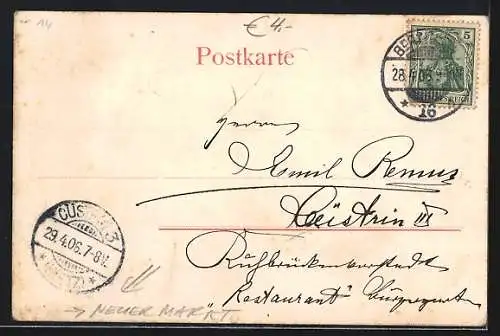 14
€ 4.-
Postkarte
5
28.4.06
16
Herrn
Emil Remus
Cüstrin III
CÜSTRIN 3
29.4.06.7-8V.
"Restaurant"
→ NEUER MARKT